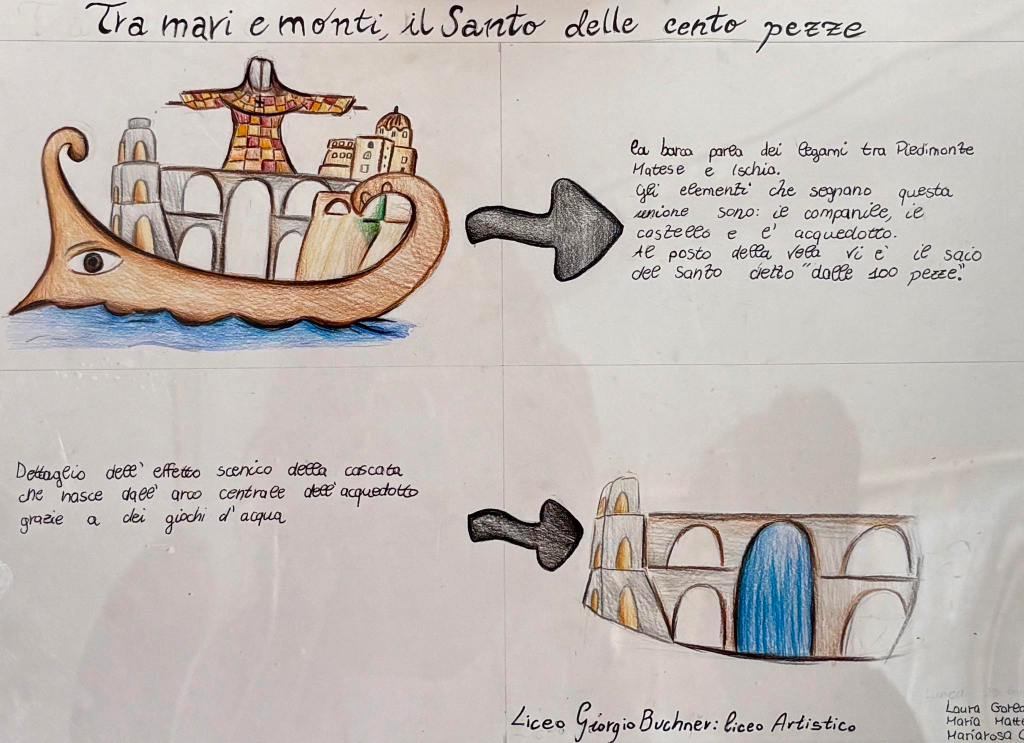 Tra mari e monti, il Santo delle cento pezze
la barca parla dei legami tra Piedimonte
Matese e Ischia.
Gli elementi che segnano questa
unione sono: il companile, il
castello e l' acquedotto.
Al posto della vela vi è il saio
del Santo detto "dalle 100 pezze".
Dettaglio dell' effetto scenico della cascata
che nasce dall' arco centrale dell' acquedotto
grazie a dei giochi d' acqua
Liceo Giorgio Buchner: liceo Artistico
Laura
Maria
Mariarosa